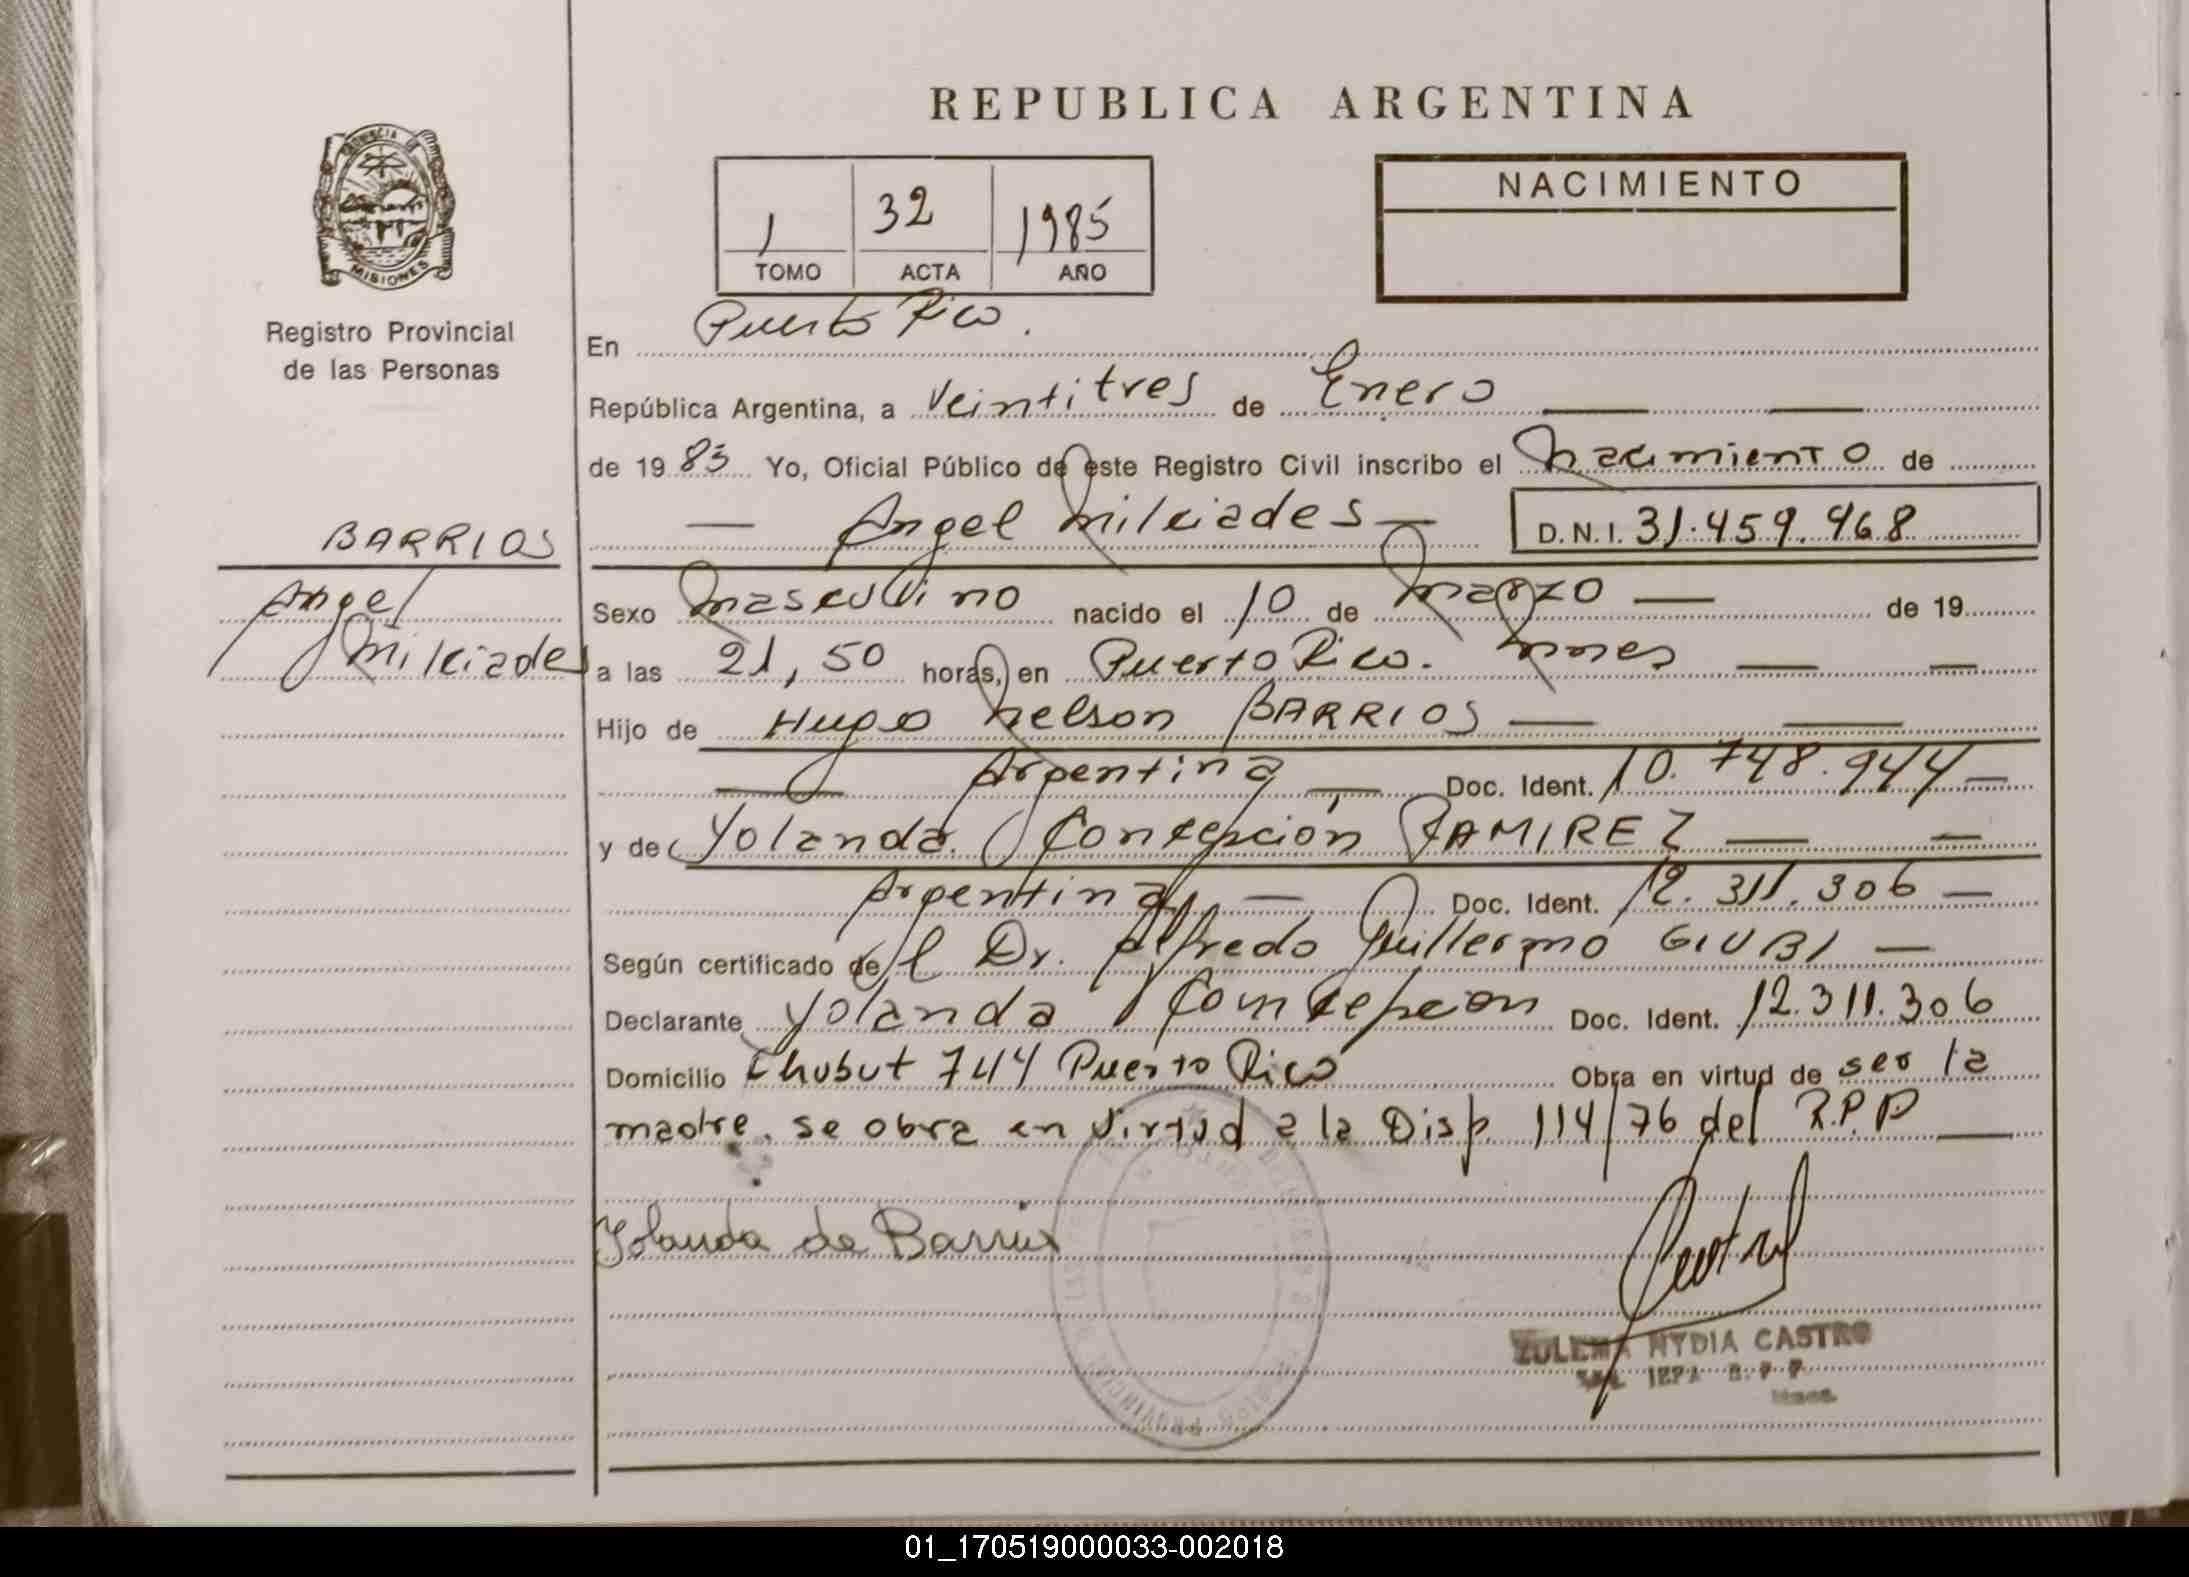 REPUBLICA ARGENTINA
PROVINCIA DE
MISIONES
Registro Provincial
de las Personas
1 32 1985
TOMO ACTA AÑO
NACIMIENTO
En Puerto Rico.
República Argentina, a Veintitres de Enero
de 19 85 Yo, Oficial Público de este Registro Civil inscribo el Nacimiento de
Angel Milciades D.N.I. 31.459.468
BARRIOS
Angel
Milciades
Sexo Masculino nacido el 10 de Marzo de 19
a las 21,50 horas, en Puerto Rico. Mnes
Hijo de Hugo Nelson BARRIOS
Argentina Doc. Ident. 10.748.944
y de Yolanda Concepción RAMIREZ
Argentina Doc. Ident. 12.311.306
Según certificado del Dr. Alfredo Guillermo GIUBI
Declarante Yolanda Concepcion Doc. Ident. 12.311.306
Domicilio Chubut 744 Puerto Rico Obra en virtud de ser la
madre. se obra en Virtud a la Disp. 114/76 del R.P.P
Yolanda de Barrios
ZULEMA NYDIA CASTRO
01_170519000033-002018